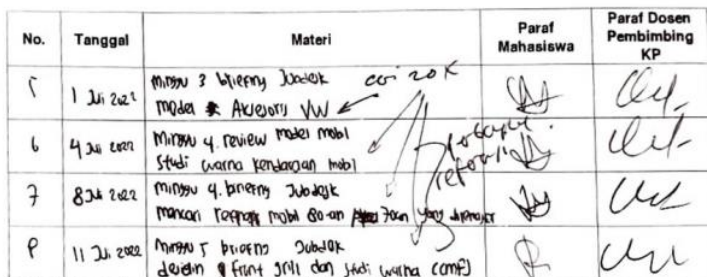 No. Tanggal Materi Paraf Mahasiswa Paraf Dosen Pembimbing KP
5 1 Juli 2022 Minggu 3 briefing Jobdesk
model Aksesoris VW
6 4 Juli 2022 Minggu 4. review model mobil
Studi warna kendaraan mobil
7 8 Juli 2022 Minggu 4. briefing Jobdesk
mencari mobil 80-an 70an yang
8 11 Juli 2022 Minggu 5 briefing Jobdesk
design front grill dan studi warna